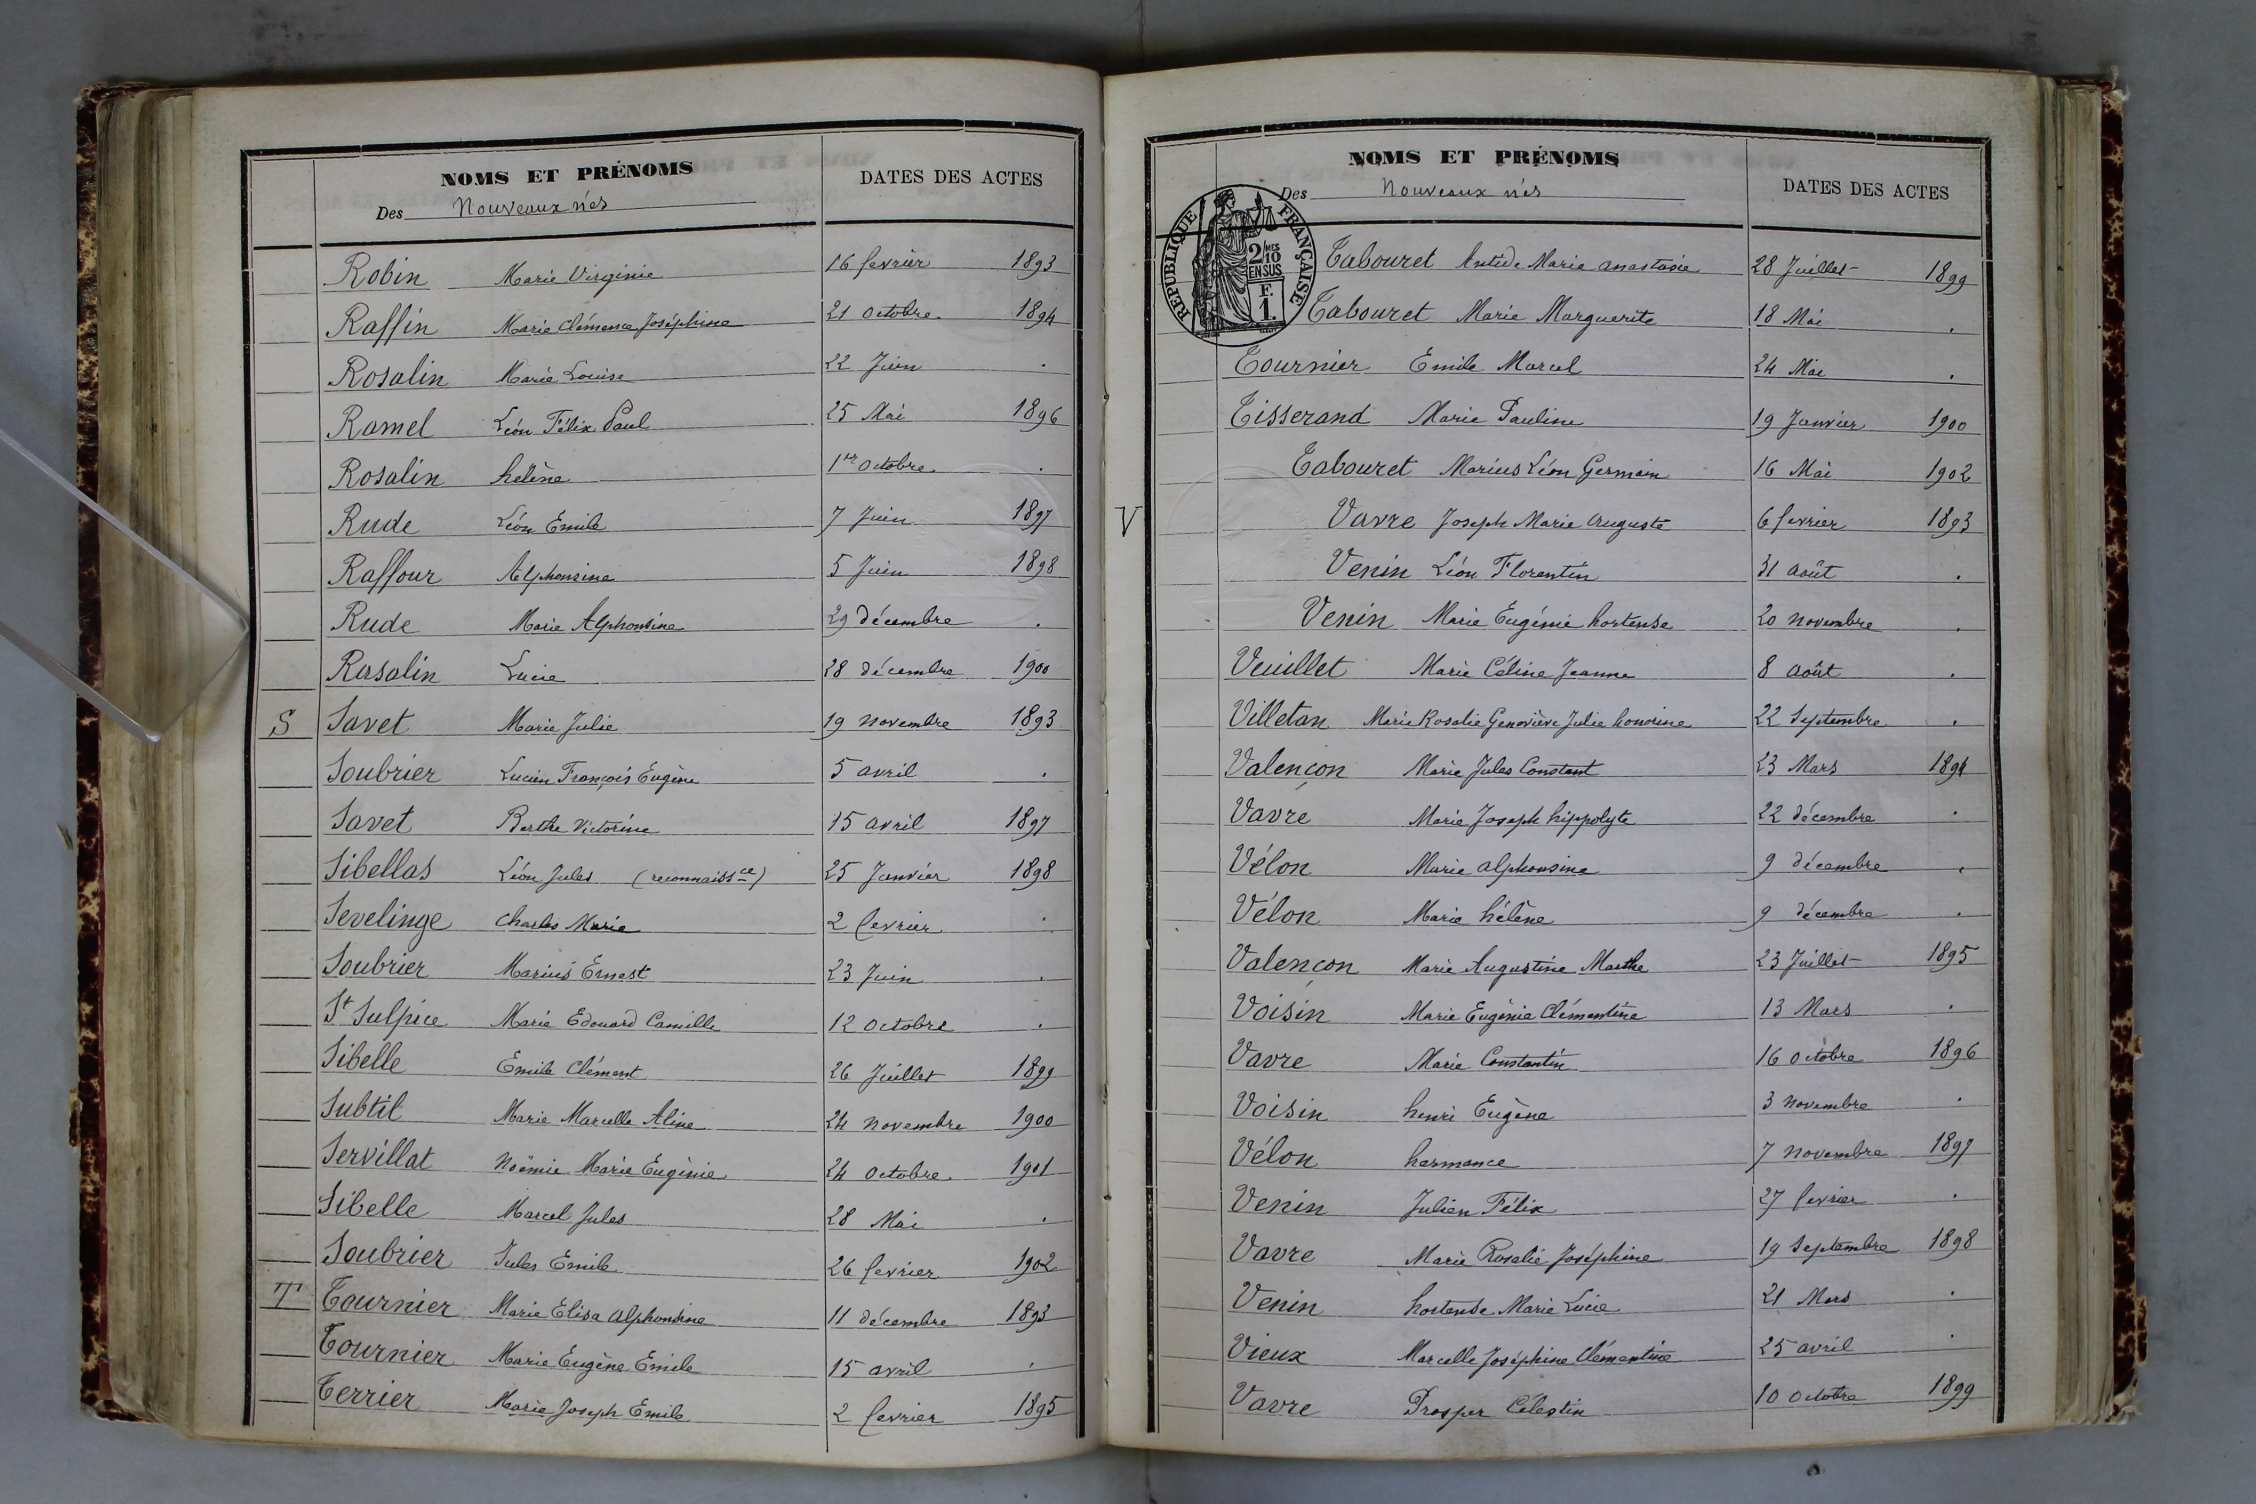 NOMS ET PRÉNOMS
DATES DES ACTES
Des Nouveaux nés
Robin Marie Virginie 16 fevrier 1893
Raffin Marie Clémence Joséphine 21 octobre 1894
Rosalin Marie Louise 22 Juin .
Ramel Léon Félix Paul 25 Mai 1896
Rosalin helène 1er octobre .
Rude Léon Emile 7 Juin 1897
Raffour Alphonsine 5 Juin 1898
Rude Marie Alphonsine 29 décembre .
Rosalin Lucie 28 décembre 1900
S Savet Marie Julie 19 novembre 1893
Soubrier Lucien François Eugène 5 avril .
Savet Berthe Victorine 15 avril 1897
Sibellas Léon Jules (reconnaissce) 25 Janvier 1898
Sevelinge Charles Marie 2 fevrier .
Soubrier Marius Ernest 23 Juin .
St Sulpice Marie Edouard Camille 12 octobre .
Sibelle Emile Clément 26 Juillet 1899
Subtil Marie Marcelle Aline 24 novembre 1900
Servillat Noëmie Marie Eugénie 24 octobre 1901
Sibelle Marcel Jules 28 Mai .
Soubrier Jules Emile 26 fevrier 1902
T Tournier Marie Elisa alphonsine 11 décembre 1893
Tournier Marie Eugène Emile 15 avril .
Terrier Marie Joseph Emile 2 fevrier 1895
NOMS ET PRÉNOMS
DATES DES ACTES
Des Nouveaux nés
REPUBLIQUE FRANÇAISE
2/10 MES
EN SUS
F.
1.
Tabouret Antide Marie anastasie 28 Juillet 1899
Tabouret Marie Marguerite 18 Mai .
Tournier Emile Marcel 24 Mai .
Tisserand Marie Pauline 19 Janvier 1900
Tabouret Marius Léon Germain 16 Mai 1902
V Vavre Joseph Marie Auguste 6 fevrier 1893
Venin Léon Florentin 31 août .
Venin Marie Eugénie hortense 20 novembre .
Veuillet Marie Céline Jeanne 8 août .
Villetan Marie Rosalie Geneviève Julie honorine 22 Septembre .
Valençon Marie Jules Constant 23 Mars 1894
Vavre Marie Joseph hippolyte 22 décembre .
Vélon Marie alphonsine 9 décembre .
Vélon Marie hélène 9 décembre .
Valençon Marie Augustine Marthe 23 Juillet 1895
Voisin Marie Eugénie Clémentine 13 Mars .
Vavre Marie Constantin 16 octobre 1896
Voisin henri Eugène 3 novembre .
Vélon hermance 7 novembre 1897
Venin Julien Félix 27 fevrier .
Vavre Marie Rosalie Joséphine 19 Septembre 1898
Venin hortense Marie Lucie 21 Mars .
Vieux Marcelle Joséphine Clémentine 25 avril .
Vavre Prosper Célestin 10 octobre 1899